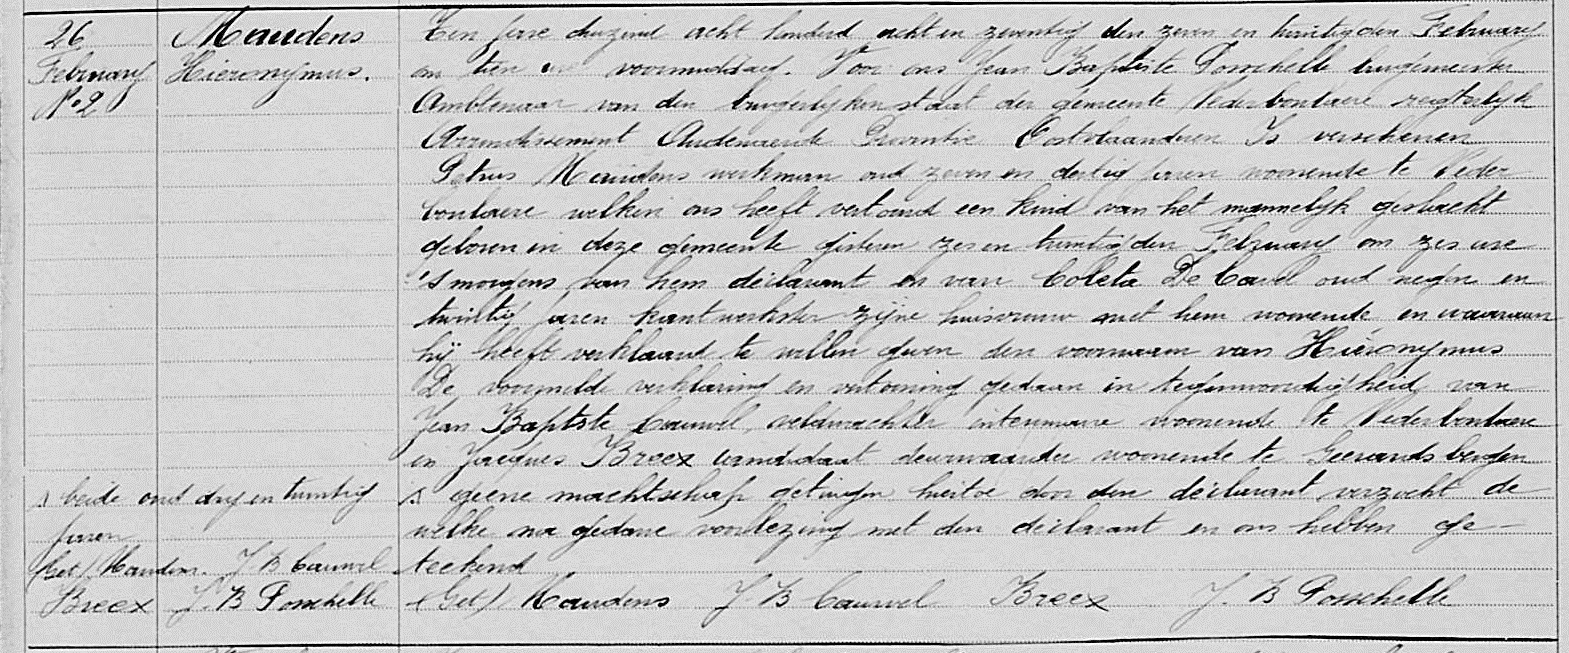 26
February
No 2
Maudens
Hieronymus.
Ten jare duizend acht honderd acht en zeventig den zeven en twintigsten February
om tien ure voormiddag. Voor ons Jean Baptiste Posschelle burgemeester
Ambtenaar van den burgerlyken staat der gemeente Nederboulaere regterlyk
Arrondissement Audenaerde Provintie Oostvlaanderen Is verschenen
Petrus Maudens werkman oud zeven en dertig jaren woonende te Neder
boulaere welken ons heeft vertoond een kind van het mannelyk geslacht
geboren in deze gemeente gisteren zes en twintig den February om zes ure
's morgens van hem déclarant en van Coleta De Cauvel oud negen en
twintig jaren kantwerkster zijne huisvrouw met hem woonende en waaraan
hij heeft verklaard te willen geven den voornaam van Hiéronymus
De voormelde verklaring en vertooning gedaan in tegenwoordigheid van
Jean Baptste Cauwel veldwachter woonende te Nederboulaere
en Jacques Breex candidaat deurwaarder woonende te Geerardsbergen
s beide oud dry en twintig
jaren
s geene maetschap getuigen hiertoe door den déclarant verzocht de
welke na gedane voorlezing met den déclarant en ons hebben ge-
teekend
(Get) Maudens. J B Cauwel
Breex J. B Posschelle
(Get) Maudens J B Cauwel Breex J. B Posschelle